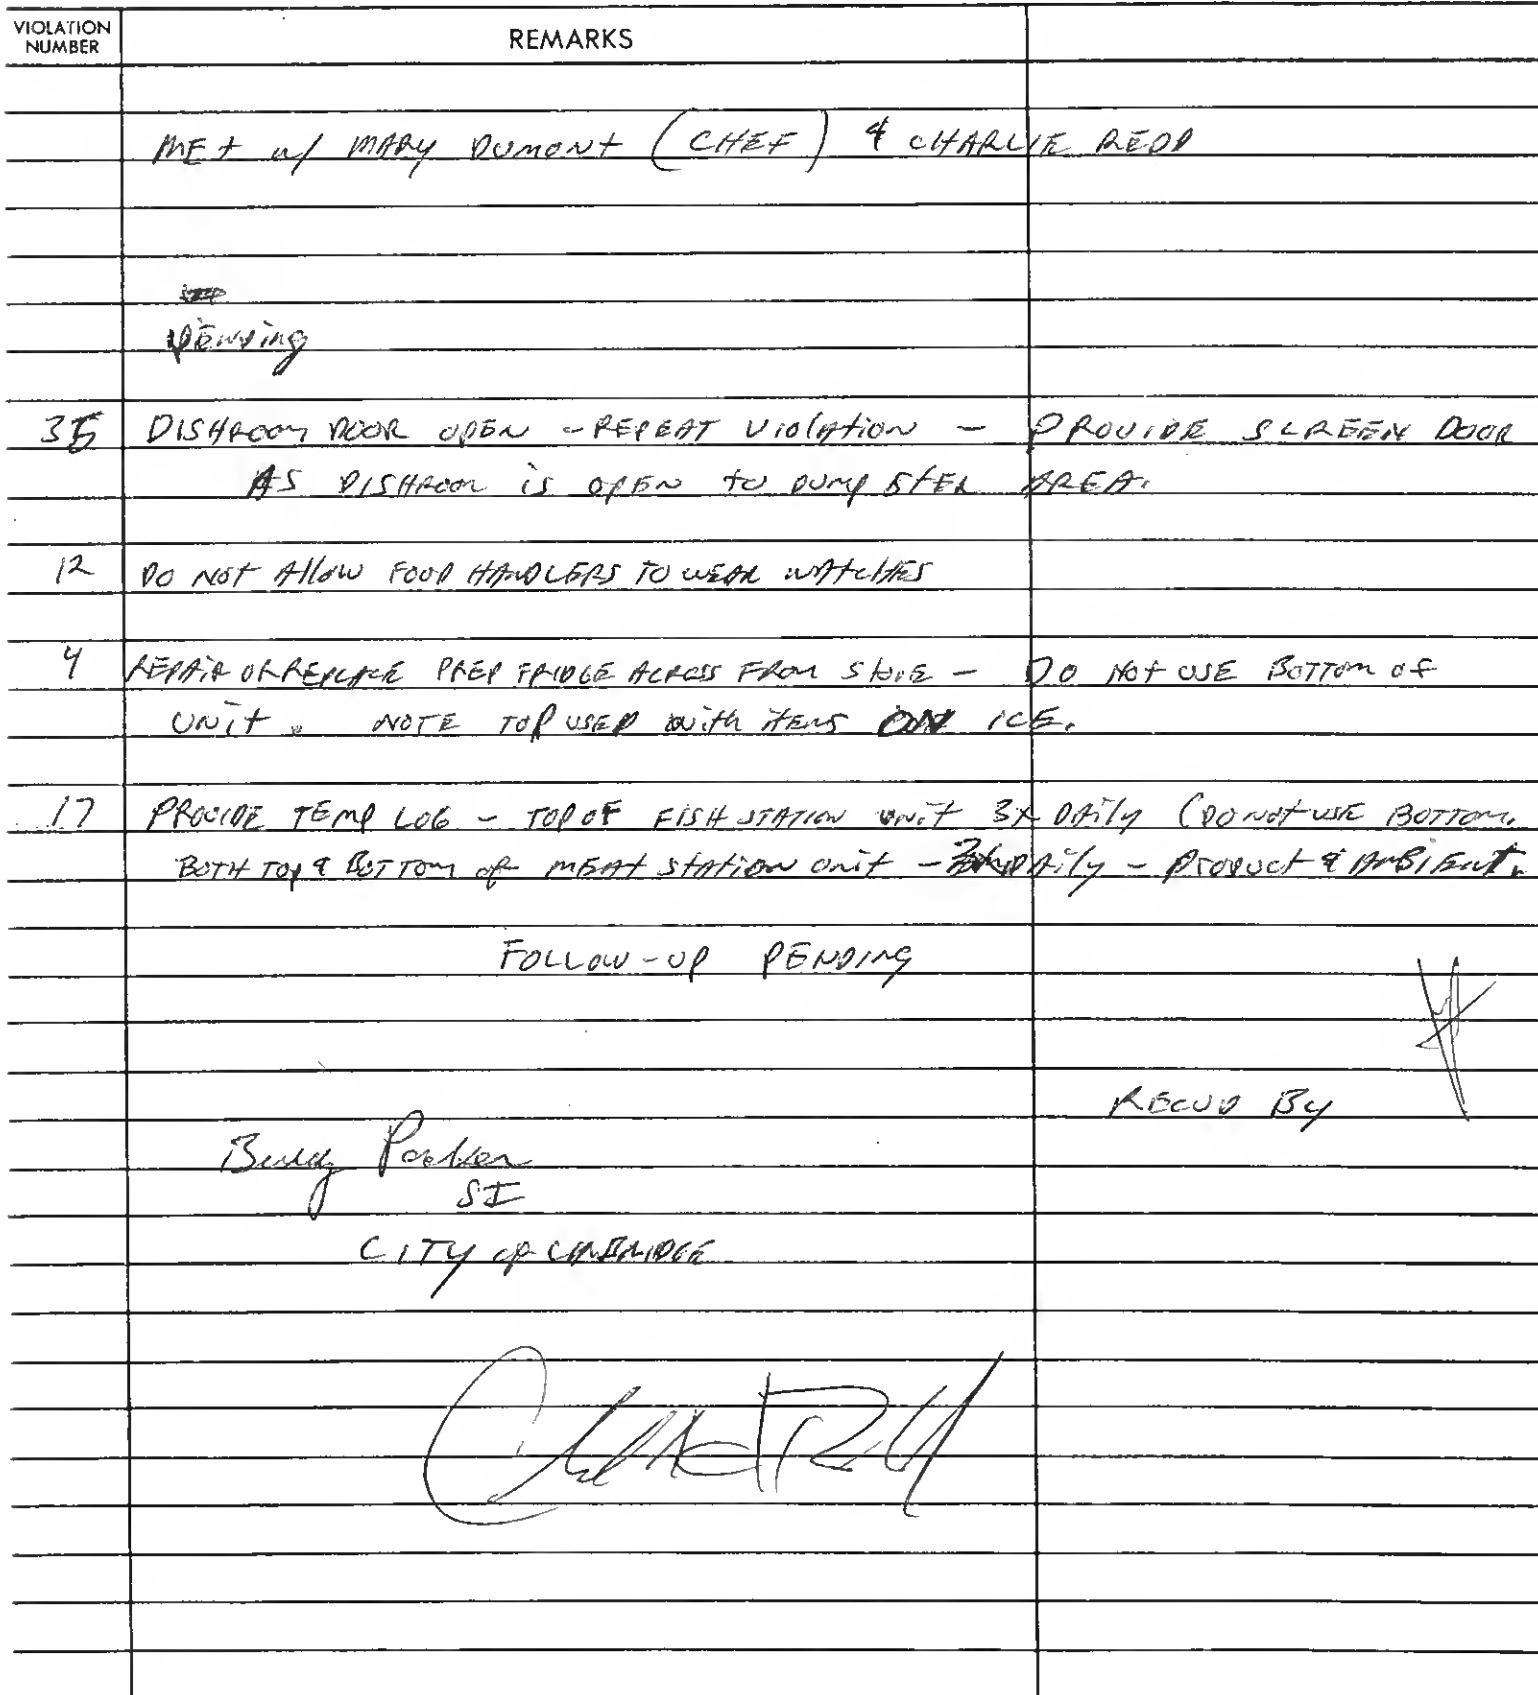 VIOLATION
NUMBER
REMARKS
MET w/ MARY DUMONT (CHEF) & CHARLIE REDD
PENDING
35 DISHROOM DOOR OPEN - REPEAT VIOLATION - PROVIDE SCREEN DOOR
AS DISHROOM is OPEN to DUMPSTER AREA.
12 DO NOT Allow FOOD HANDLERS TO WEAR WATCHES
4 REPAIR OR REPLACE PREP FRIDGE ACROSS FROM STOVE - DO NOT USE BOTTOM OF
UNIT. NOTE TOP USED with ITEMS ON ICE.
17 PROVIDE TEMP LOG - TOP OF FISH STATION UNIT 3X DAILY (DO NOT USE BOTTOM.
BOTH TOP & BOTTOM of MEAT STATION UNIT - DAILY - PRODUCT & AMBIENT.
FOLLOW-UP PENDING
RECVD By
Parker
SI
CITY OF CAMBRIDGE